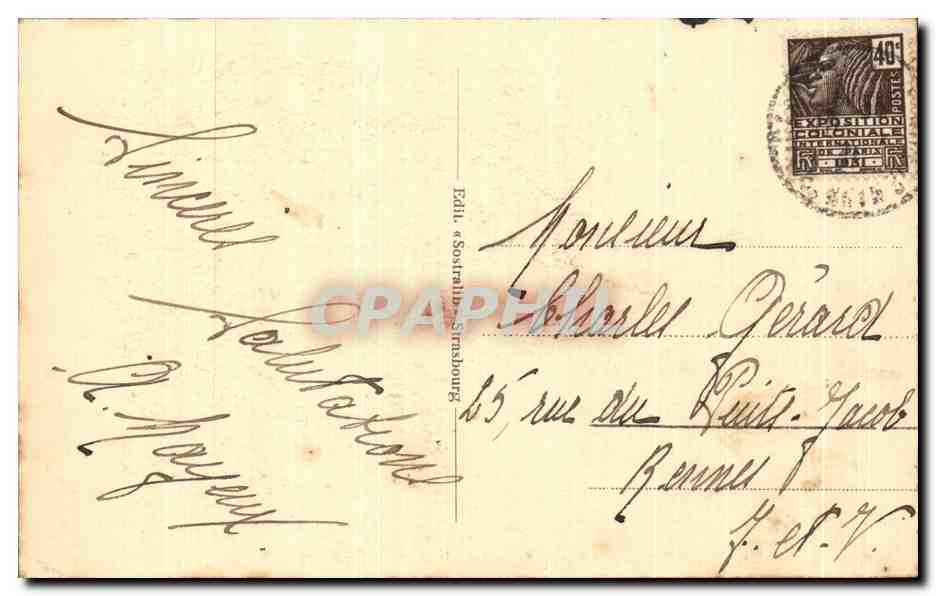 Sincères
Salutations
A. Mayeux
Edit. «Sostralib» Strasbourg
CPAPHIL
40c
POSTES
EXPOSITION
COLONIALE
INTERNATIONALE
DE PARIS
1931
Monsieur
Charles Gérard
25, rue du Puits-Jacob
Rennes
I.-et-V.